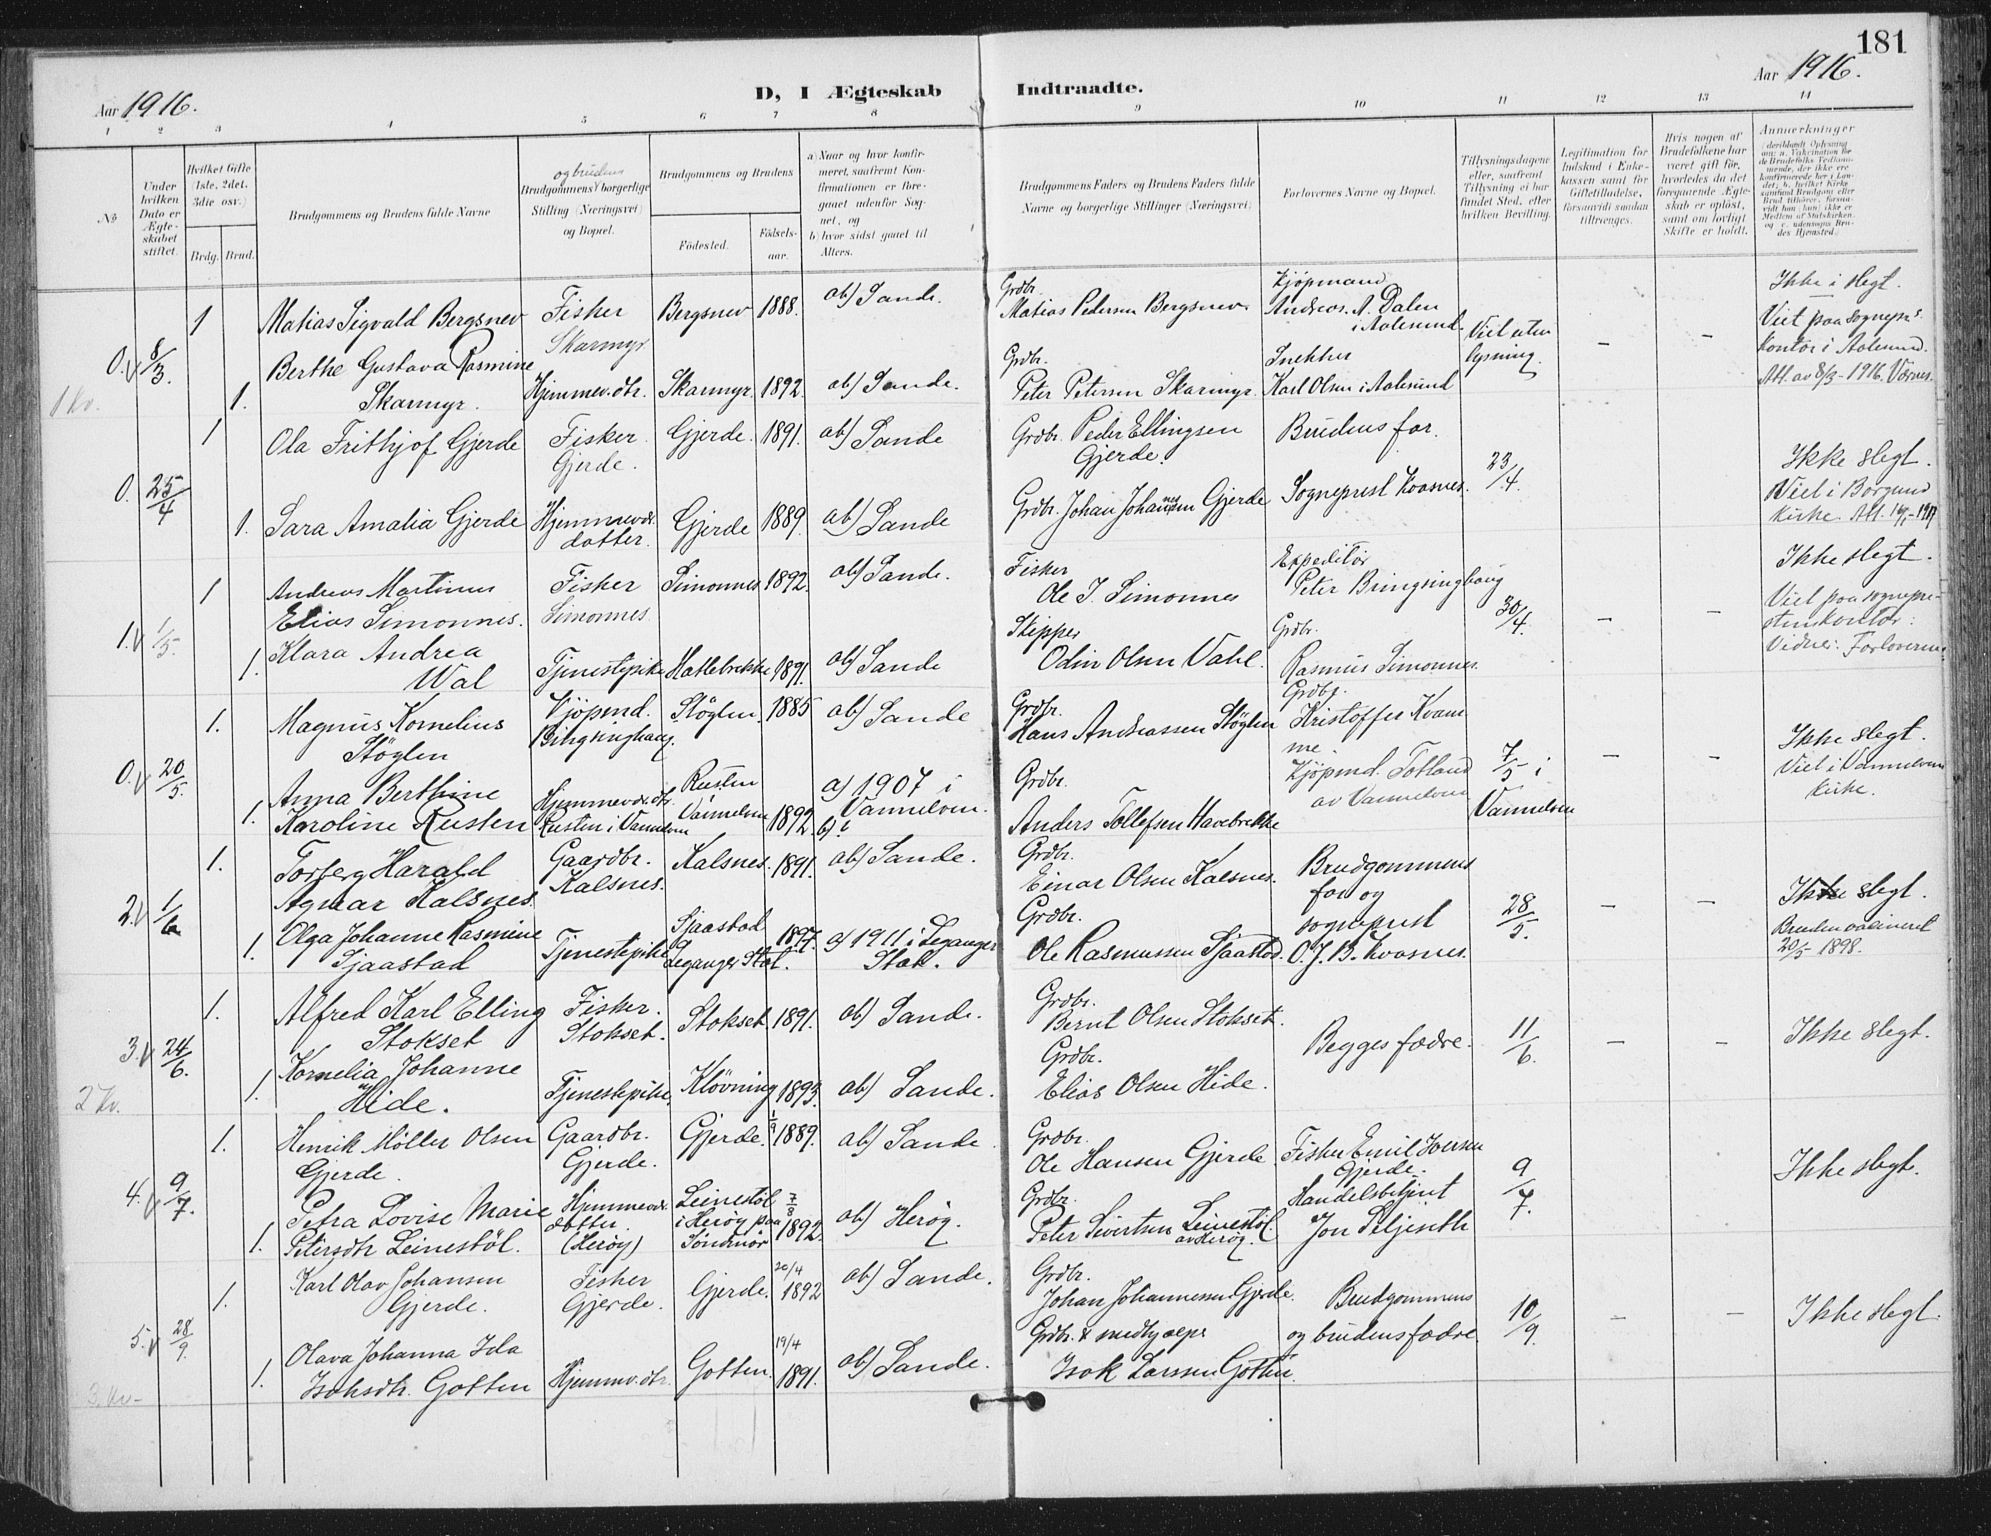 181
Aar 1916.
D, I Ægteskab
Indtraadte.
Aar 1916.
1 2 3 4 5 6 7 8 9 10 11 12 13 14
No
Under hvilken Dato er Ægteskabet stiftet.
Hvilket Gifte 1ste, 2det, 3die osv.)
Brdg. Brud.
Brudgommens og Brudens fulde Navne
og brudens
Brudgommens borgerlige Stilling (Næringsvei) og Bopæl.
Brudgommens og Brudens
Fødested.
Fødselsaar.
a) Naar og hvor konfirmeret, saafremt Konfirmationen er foregaaet udenfor Sognet, og
b) hvor sidst gaaet til Alters.
Brudgommens Faders og Brudens Faders fulde Navne og borgerlige Stillinger (Næringsvei)
Forlovernes Navne og Bopæl.
Tillysningsdagene eller, saafremt Tillysning ei har fundet Sted, efter hvilken Bevilling.
Legitimation for Indskud i Enkekassen samt for Giftetilladelse, forsaavidt saadan tiltrænges.
Hvis nogen af Brudefolkene har været gift før, hvorledes da det foregaaende Ægteskab er opløst, samt om lovligt Skifte er holdt.
Anmerkninger
0. 8/3.
1 Matias Sigvald Bergsnev
Fisker
Skarmyr.
Bergsnev 1888. ab) Sande.
Grdbr.
Matias Pedersen Bergsnev.
Kjøpmand
Andreas. A. Dalen
i Aalesund.
Viet uten
lysning.
–
–
Ikke i slegt.
Viet paa sognepr.
kontor i Aalesund.
Att. av 8/3 - 1916. Værnes.
1 kv.
1. Berthe Gustava Rasmine
Skarmyr.
Hjemmev.dtr. Skarmyr. 1892. ab) Sande.
Grdbr.
Peter Petersen Skarmyr.
Snekker
Karl Olsen i Aalesund
0. 25/4
1 Ola Frithjof Gjerde
Fisker.
Gjerde.
Gjerde. 1891. ab) Sande
Grdbr. Peder Ellingsen
Gjerde.
Brudens far.
23/4.
Ikke slegt.
Viet i Borgund
kirke.
1. Sara Amalia Gjerde
Hjemmev.
datter.
Gjerde 1889. ab) Sande
Grdbr. Johan Johannesen Gjerde
Sogneprest Kvasnes.
1. 1/5.
1 Andreas Martinus
Elias Simonnes.
Fisker
Simonnes.
Simonnes 1892. ab) Sande.
Fisker
Ole I. Simonnes
Expeditør
Peter Bringsinghaug
30/4.
–
–
Ikke slegt.
Viet paa sogneprestenskontor.
Vidner: Forloverne
1. Klara Andrea
Wal
Tjenestepike Hatlebrekke 1891. ab) Sande
Skipper
Odin Olsen Vahl.
Grdbr.
Rasmus Simonnes.
0. 20/5.
1. Magnus Kornelius
Støylen
Kjøpmd.
Bringsinghaug.
Støylen. 1885 ab) Sande
Grdbr.
Hans Andreassen Støylen
Grdbr.
Kristoffer Kvamme.
7/5 i
Vannelven
–
–
Ikke slegt.
Viet i Vannelven
kirke.
1. Anna Berthine
Karoline Rusten
Hjemmev.dtr.
Rusten i Vannelven
Rusten
Vannelven 1892. a) 1907 i
Vannelven.
b) ?
Grdbr.
Anders Tollefsen Havebrekke
Kjøpmd. Totland
av Vannelven
2. 1/6
1. Torberg Harald
Agnar Kalsnes
Gaardbr.
Kalsnes.
Kalsnes. 1891. ab) Sande.
Grdbr.
Einar Olsen Kalsnes.
Brudgommens
far og
sogneprest
O. J. B. Kvasnes.
28/5.
–
–
Ikke slegt.
Bruden vakcineret
20/5 1898.
1. Olga Johanne Rasmine
Sjaastad
Tjenestepike
Sjaastad
Leganger Stat. 1897. a) 1911 i Leganger
Stat.
Grdbr.
Ole Rasmussen Sjaastad.
3. 24/6.
1. Alfred Karl Elling
Stokset
Fisker.
Stokset.
Stokset. 1891. ab) Sande.
Grdbr.
Bernt Olsen Stokset.
Begges fædre.
11/6.
–
–
Ikke slegt.
2 kv.
1. Kornelia Johanne
Hide.
Tjenestepike. Kløvning 1893. ab) Sande.
Grdbr.
Elias Olsen Hide.
4. 9/7.
1. Henrik Møller Olsen
Gjerde.
Gaardbr.
Gjerde.
Gjerde. 1/9 1889. ab) Sande
Grdbr.
Ole Hansen Gjerde.
Fisker Emil Iversen
Gjerde.
9/7.
Ikke slegt.
1. Petra Lovise Marie
Petersdtr. Leinestøl.
Hjemmev.
datter.
(Herøy)
Leinestøl
i Herøy paa
Søndmør 7/8 1892. ab) Herøy.
Grdbr.
Peter Sivertsen Leinestøl.
av Herøy.
Handelsbetjent
Jon Seljeseth
5. 28/9.
1. Karl Olav Johansen
Gjerde.
Fisker
Gjerde.
Gjerde. 20/4 1892 ab) Sande.
Grdbr.
Johan Johannessen Gjerde.
Brudgommens
og brudens fædre
10/9.
–
–
Ikke slegt.
3. kv-
1. Olava Johanna Ida
Isaksdtr. Gotten
Hjemmev.dtr. Gotten. 19/4 1891. ab) Sande.
Grdbr. & medhjælper
Isak Larssen Gotten.